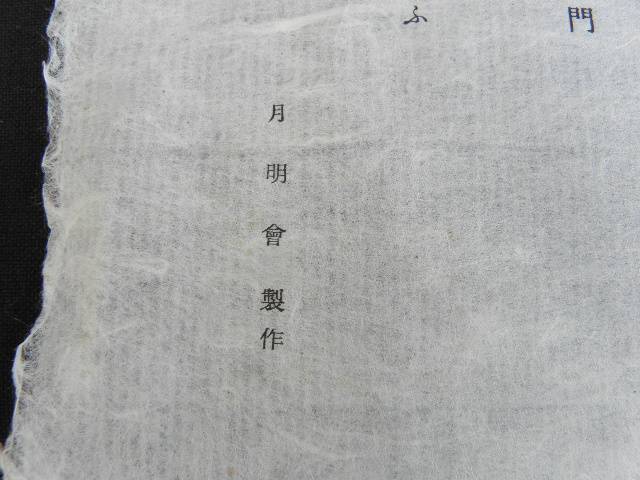 門
ふ
月明會製作